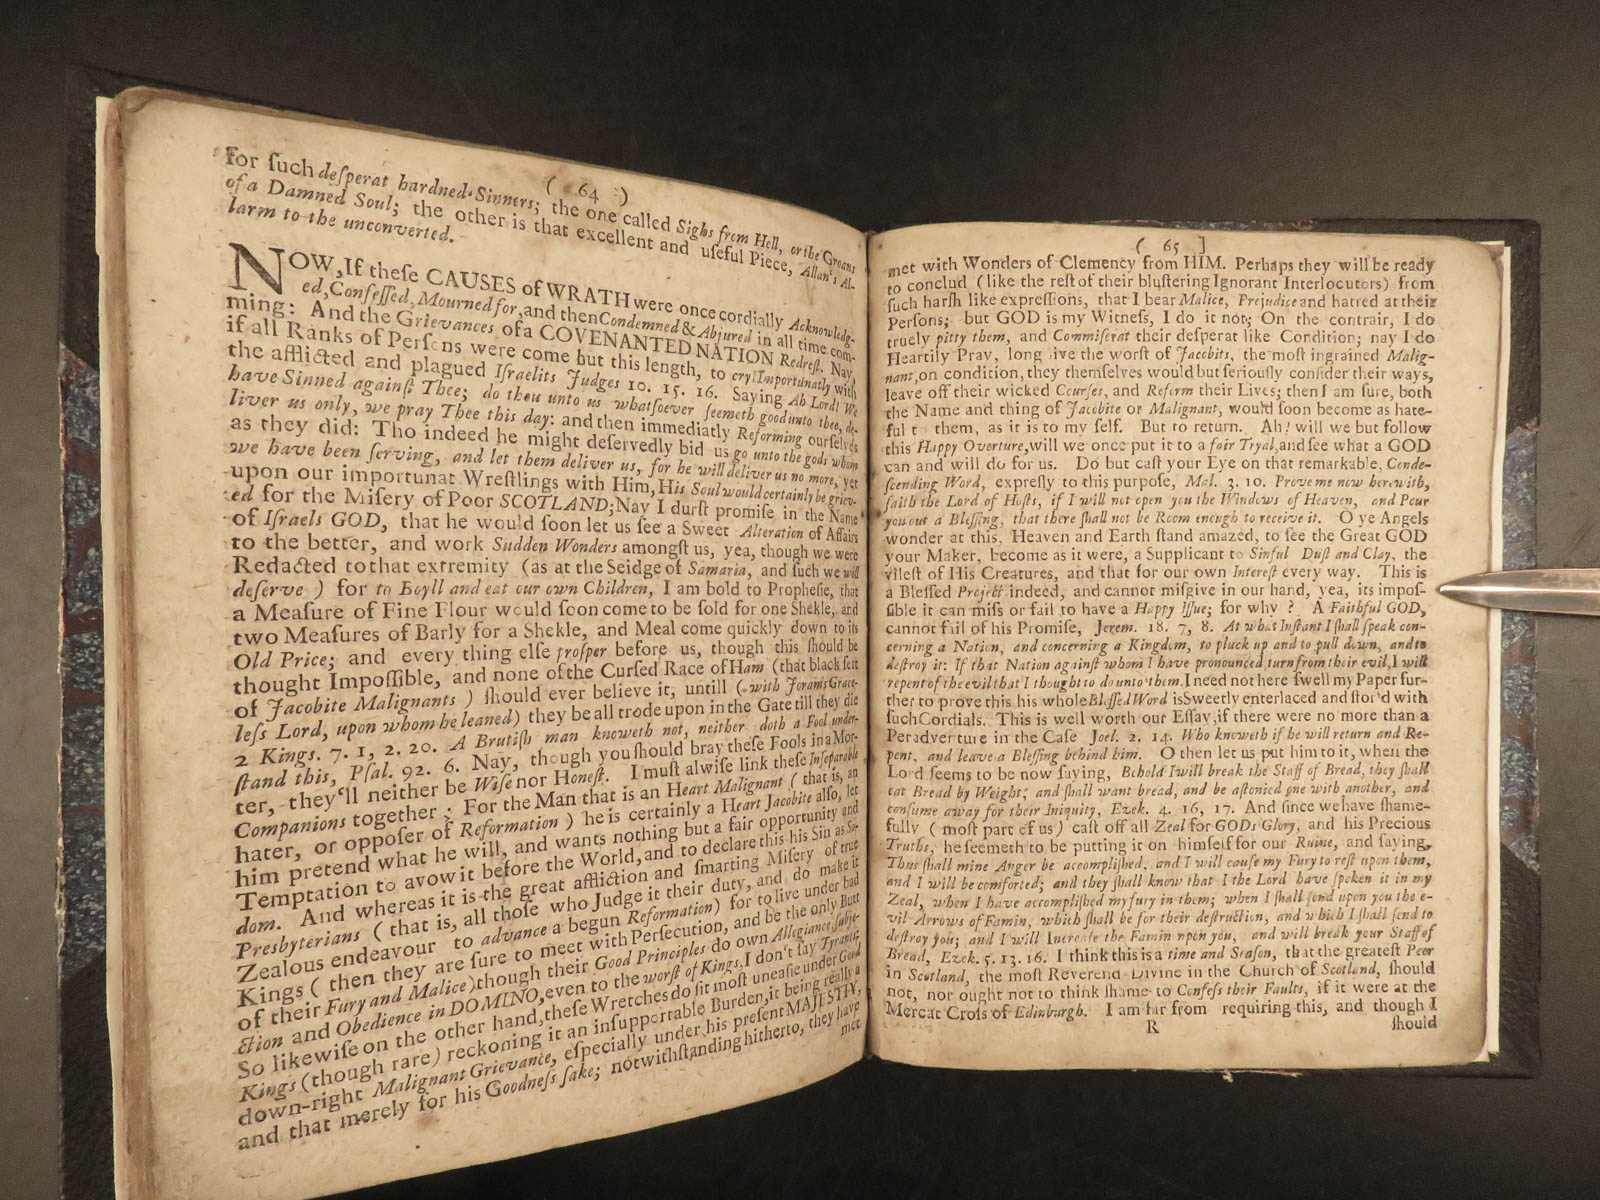 ( 64 )
for ſuch deſperat hardned Sinners; the one called Sighs from Hell, or the Groans
of a Damned Soul; the other is that excellent and uſeful Piece, Allan's Al-
larm to the unconverted.
NOW, If theſe CAUSES of WRATH were once cordially Acknowledg-
ed, Confeſſed, Mourned for, and then Condemned & Abjured in all time com-
ming: And the Grievances of a COVENANTED NATION Redreſt. Nay,
if all Ranks of Perſons were come but this length, to cry Importunatly with
the afflicted and plagued Iſraelits Judges 10. 15. 16. Saying Ah Lord! We
have Sinned againſt Thee; do thou unto us whatſoever ſeemeth good unto thee, de-
liver us only, we pray Thee this day: and then immediatly Reforming ourſelves
as they did: Tho indeed he might deſervedly bid us go unto the gods whom
we have been ſerving, and let them deliver us, for he will deliver us no more, yet
upon our importunat Wreſtlings with Him, His Soul would certainly be griev-
ed for the Miſery of Poor SCOTLAND; Nay I durſt promiſe in the Name
of Iſraels GOD, that he would ſoon let us ſee a Sweet Alteration of Affairs
to the better, and work Sudden Wonders amongſt us, yea, though we were
Redacted to that extremity (as at the Seidge of Samaria, and ſuch we will
deſerve ) for to Boyll and eat our own Children, I am bold to Propheſie, that
a Meaſure of Fine Flour would ſoon come to be ſold for one Shekle, and
two Meaſures of Barly for a Shekle, and Meal come quickly down to its
Old Price; and every thing elſe proſper before us, though this ſhould be
thought Impoſſible, and none of the Curſed Race of Ham (that black ſett
of Jacobite Malignants ) ſhould ever believe it, untill ( with Jorams Grace-
leſs Lord, upon whom he leaned) they be all trode upon in the Gate till they die
2 Kings. 7. 1, 2. 20. A Brutiſh man knoweth not, neither doth a Fool under-
ſtand this, Pſal. 92. 6. Nay, though you ſhould bray theſe Fools in a Mor-
ter, they'll neither be Wiſe nor Honeſt. I muſt alwiſe link theſe Inſeparable
Companions together; For the Man that is an Heart Malignant ( that is, an
hater, or oppoſer of Reformation ) he is certainly a Heart Jacobite alſo, let
him pretend what he will, and wants nothing but a fair opportunity and
Temptation to avow it before the World, and to declare this his Sin as So-
dom. And whereas it is the great affliction and ſmarting Miſery of true
Presbyterians ( that is, all thoſe who Judge it their duty, and do make it
Zealous endeavour to advance a begun Reformation) for to live under bad
Kings ( then they are ſure to meet with Perſecution, and be the only Butt
of their Fury and Malice) though their Good Principles do own Allegiance, Subje-
ction and Obedience in DOMINO, even to the worſt of Kings. I don't ſay Tyrants;
So likewiſe on the other hand, theſe Wretches do ſit moſt uneaſie under Good
Kings (though rare) reckoning it an inſupportable Burden, it being really a
down-right Malignant Grievance, eſpecially under his preſent MAJESTIY,
and that merely for his Goodneſs ſake; notwithſtanding hitherto, they have
met
( 65 ]
met with Wonders of Clemency from HIM. Perhaps they will be ready
to conclud (like the reſt of their bluſtering Ignorant Interlocutors) from
ſuch harſh like expreſſions, that I bear Malice, Prejudice and hatred at their
Perſons; but GOD is my Witneſs, I do it not; On the contrair, I do
truely pitty them, and Commiſerat their deſperat like Condition; nay I do
Heartily Pray, long live the worſt of Jacobits, the moſt ingrained Malig-
nant, on condition, they themſelves would but ſeriouſly conſider their ways,
leave off their wicked Courſes, and Reform their Lives; then I am ſure, both
the Name and thing of Jacobite or Malignant, would ſoon become as hate-
ful to them, as it is to my ſelf. But to return. Ah! will we but follow
this Happy Overture, will we once put it to a fair Tryal, and ſee what a GOD
can and will do for us. Do but caſt your Eye on that remarkable, Conde-
ſcending Word, expreſly to this purpoſe, Mal. 3. 10. Prove me now herewith,
ſaith the Lord of Hoſts, if I will not open you the Windows of Heaven, and Pour
you out a Bleſſing, that there ſhall not be Room enough to receive it. O ye Angels
wonder at this, Heaven and Earth ſtand amazed, to ſee the Great GOD
your Maker, become as it were, a Supplicant to Sinful Duſt and Clay, the
vileſt of His Creatures, and that for our own Intereſt every way. This is
a Bleſſed Project indeed, and cannot miſgive in our hand, yea, its impoſ-
ſible it can miſs or fail to have a Happy Iſſue; for why ? A Faithful GOD,
cannot fail of his Promiſe, Jerem. 18. 7, 8. At what Inſtant I ſhall ſpeak con-
cerning a Nation, and concerning a Kingdom, to pluck up and to pull down, and to
deſtroy it: If that Nation againſt whom I have pronounced, turn from their evil, I will
repent of the evil that I thought to do unto them. I need not here ſwell my Paper fur-
ther to prove this his whole Bleſſed Word is Sweetly enterlaced and ſtor'd with
ſuch Cordials. This is well worth our Eſſay, if there were no more than a
Peradverture in the Caſe Joel. 2. 14. Who knoweth if he will return and Re-
pent, and leave a Bleſſing behind him. O then let us put him to it, when the
Lord ſeems to be now ſaying, Behold I will break the Staff of Bread, they ſhall
eat Bread by Weight; and ſhall want bread, and be aſtonied one with another, and
conſume away for their Iniquity, Ezek. 4. 16, 17. And ſince we have ſhame-
fully ( moſt part of us ) caſt off all Zeal for GODs Glory, and his Precious
Truths, he ſeemeth to be putting it on himſelf for our Ruine, and ſaying,
Thus ſhall mine Anger be accompliſhed, and I will cauſe my Fury to reſt upon them,
and I will be comforted; and they ſhall know that I the Lord have ſpoken it in my
Zeal, when I have accompliſhed my fury in them; when I ſhall ſend upon you the e-
vil Arrows of Famin, which ſhall be for their deſtruction, and which I ſhall ſend to
deſtroy you; and I will Increaſe the Famin upon you, and will break your Staff of
Bread, Ezek. 5. 13. 16. I think this is a time and Seaſon, that the greateſt Peer
in Scotland, the moſt Reverend Divine in the Church of Scotland, ſhould
not, nor ought not to think ſhame to Confeſs their Faults, if it were at the
Mercat Croſs of Edinburgh. I am far from requiring this, and though I
R ſhould